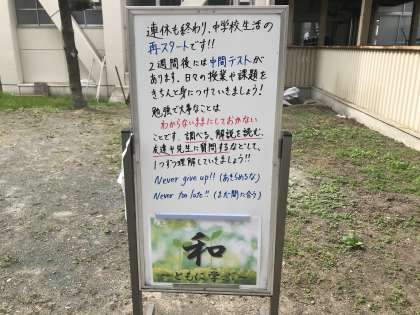 連休も終わり、中学校生活の
再スタートです!!
2週間後には中間テストが
あります。日々の授業や課題を
きちんと身につけていきましょう!
勉強で大事なことは
わからないままにしておかない
ことです。調べる、解説を読む、
友達や先生に質問するなどして、
1つずつ理解していきましょう!!
Never give up!! (あきらめるな)
Never too late!! (まだ間に合う)
和
～ともに学ぶ～